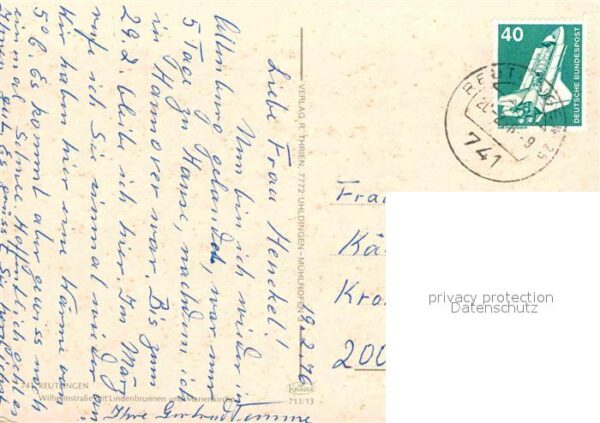 40
DEUTSCHE BUNDESPOST
REUTLINGEN 25
741
19.2.76
Liebe Frau Henckel!
Nun bin ich wieder in
gelandet, war nur
5 Tage zu Hause, nachdem ich
in Hannover war. Bis zum
29.2. bleibe ich hier. Im März
rufe ich Sie einmal wieder an
Wir haben hier eine Wärme von
5°C. Es kommt aber gewiss noch
einmal Schnee. Hoffentlich geht es
Ihnen gut. Es grüsst Sie herzlichst
Ihre Gertrud Timme
VERLAG R. THRIEN, 7772 UHLDINGEN-MÜHLHOFEN
Krüger
711/13
741 REUTLINGEN
Wilhelmstraße mit Lindenbrunnen und Marienkirche
Frau
Kä
Kro
200
privacy protection
Datenschutz